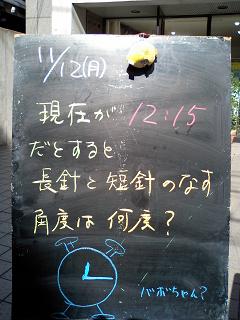 11/12(月)
現在が 12:15
だとすると
長針と短針のなす
角度は何度?
バボちゃん?